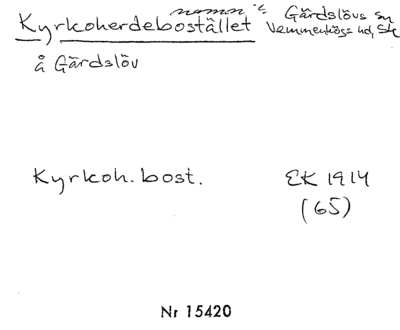 namn i Gärdslövs sn
Kyrkoherdebostället Vemmenhögs hd, Sk
å Gärdslöv
Kyrkoh. bost. EK 1914
(65)
Nr 15420